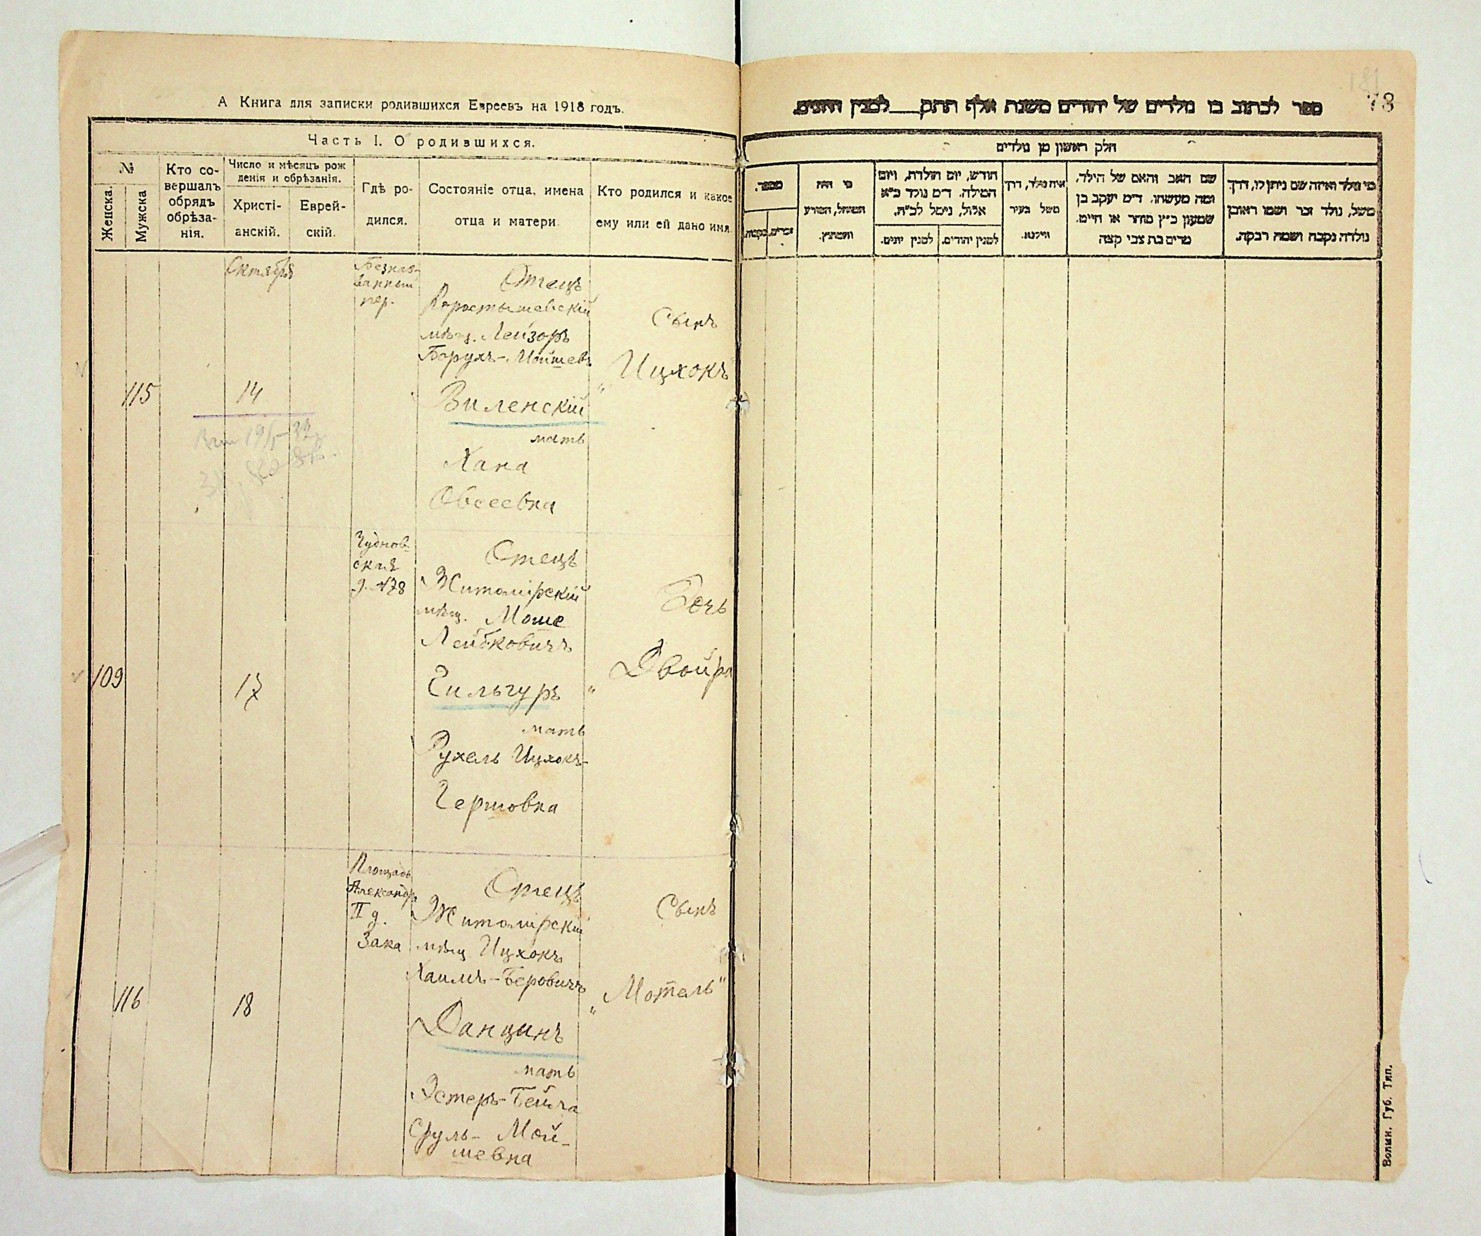 А Книга для записки родившихся Евреевъ на 1918 годъ.
Часть I. О родившихся.
№
Женска.
Мужска
Кто со-
вершалъ
обрядъ
обрѣза-
нія.
Число и мѣсяцъ рож
денія и обрѣзанія.
Христі-
анскій.
Еврей-
скій.
Гдѣ ро-
дился.
Состояніе отца, имена
отца и матери
Кто родился и какое
ему или ей дано имя.
Октября
115
14
Безназ-
ванный
пер.
Отецъ
Коростышевскій
мѣщ. Лейзоръ
Борухъ-Мойшев
Виленскій
мать
Хана
Овсеевна
Сынъ
"Ицхокъ
109
17
Чуднов
ская
д. №78
Отецъ
Житомірскій
мѣщ. Моше
Лейбковичъ
Гильгуръ
мать
Рухель Ицхокъ-
Гершовна
Дочь
"Двойра
116
18
Площадь
Александр
II д.
Зака
Отецъ
Житомірскій
мѣщ Ицхокъ
Хаимъ-Беровичъ
Данцинъ
мать
Эстеръ-Бейла
Сруль- Мой-
шевна
Сынъ
"Мотель"
78
ספר לכתוב בו נולדים של יהודים משנת אלף תתק___ למנין היונים.
חלק ראשון מן נולדים
מספר.
זכרים.
נקבות.
מי היה
המוהל, הפורע
והמוצץ.
חודש, יום הולדת, ויום
המילה. ד״מ נולד כ״א
אלול, נימל לכ״ח.
למנין יהודים.
למנין יונים.
איה נולד, דרך
משל בעיר
ווילנא.
שם האב והאם של הילד,
ומה מעשהו. ד״מ יעקב בן
שמעון כ״ץ סוחר או חייט.
מרים בת צבי קצה
מי נולד ואיזה שם ניתן לו, דרך
משל, נולד זכר ושמו ראובן
נולדה נקבה ושמה רבקה.
Волын. Губ. Тип.